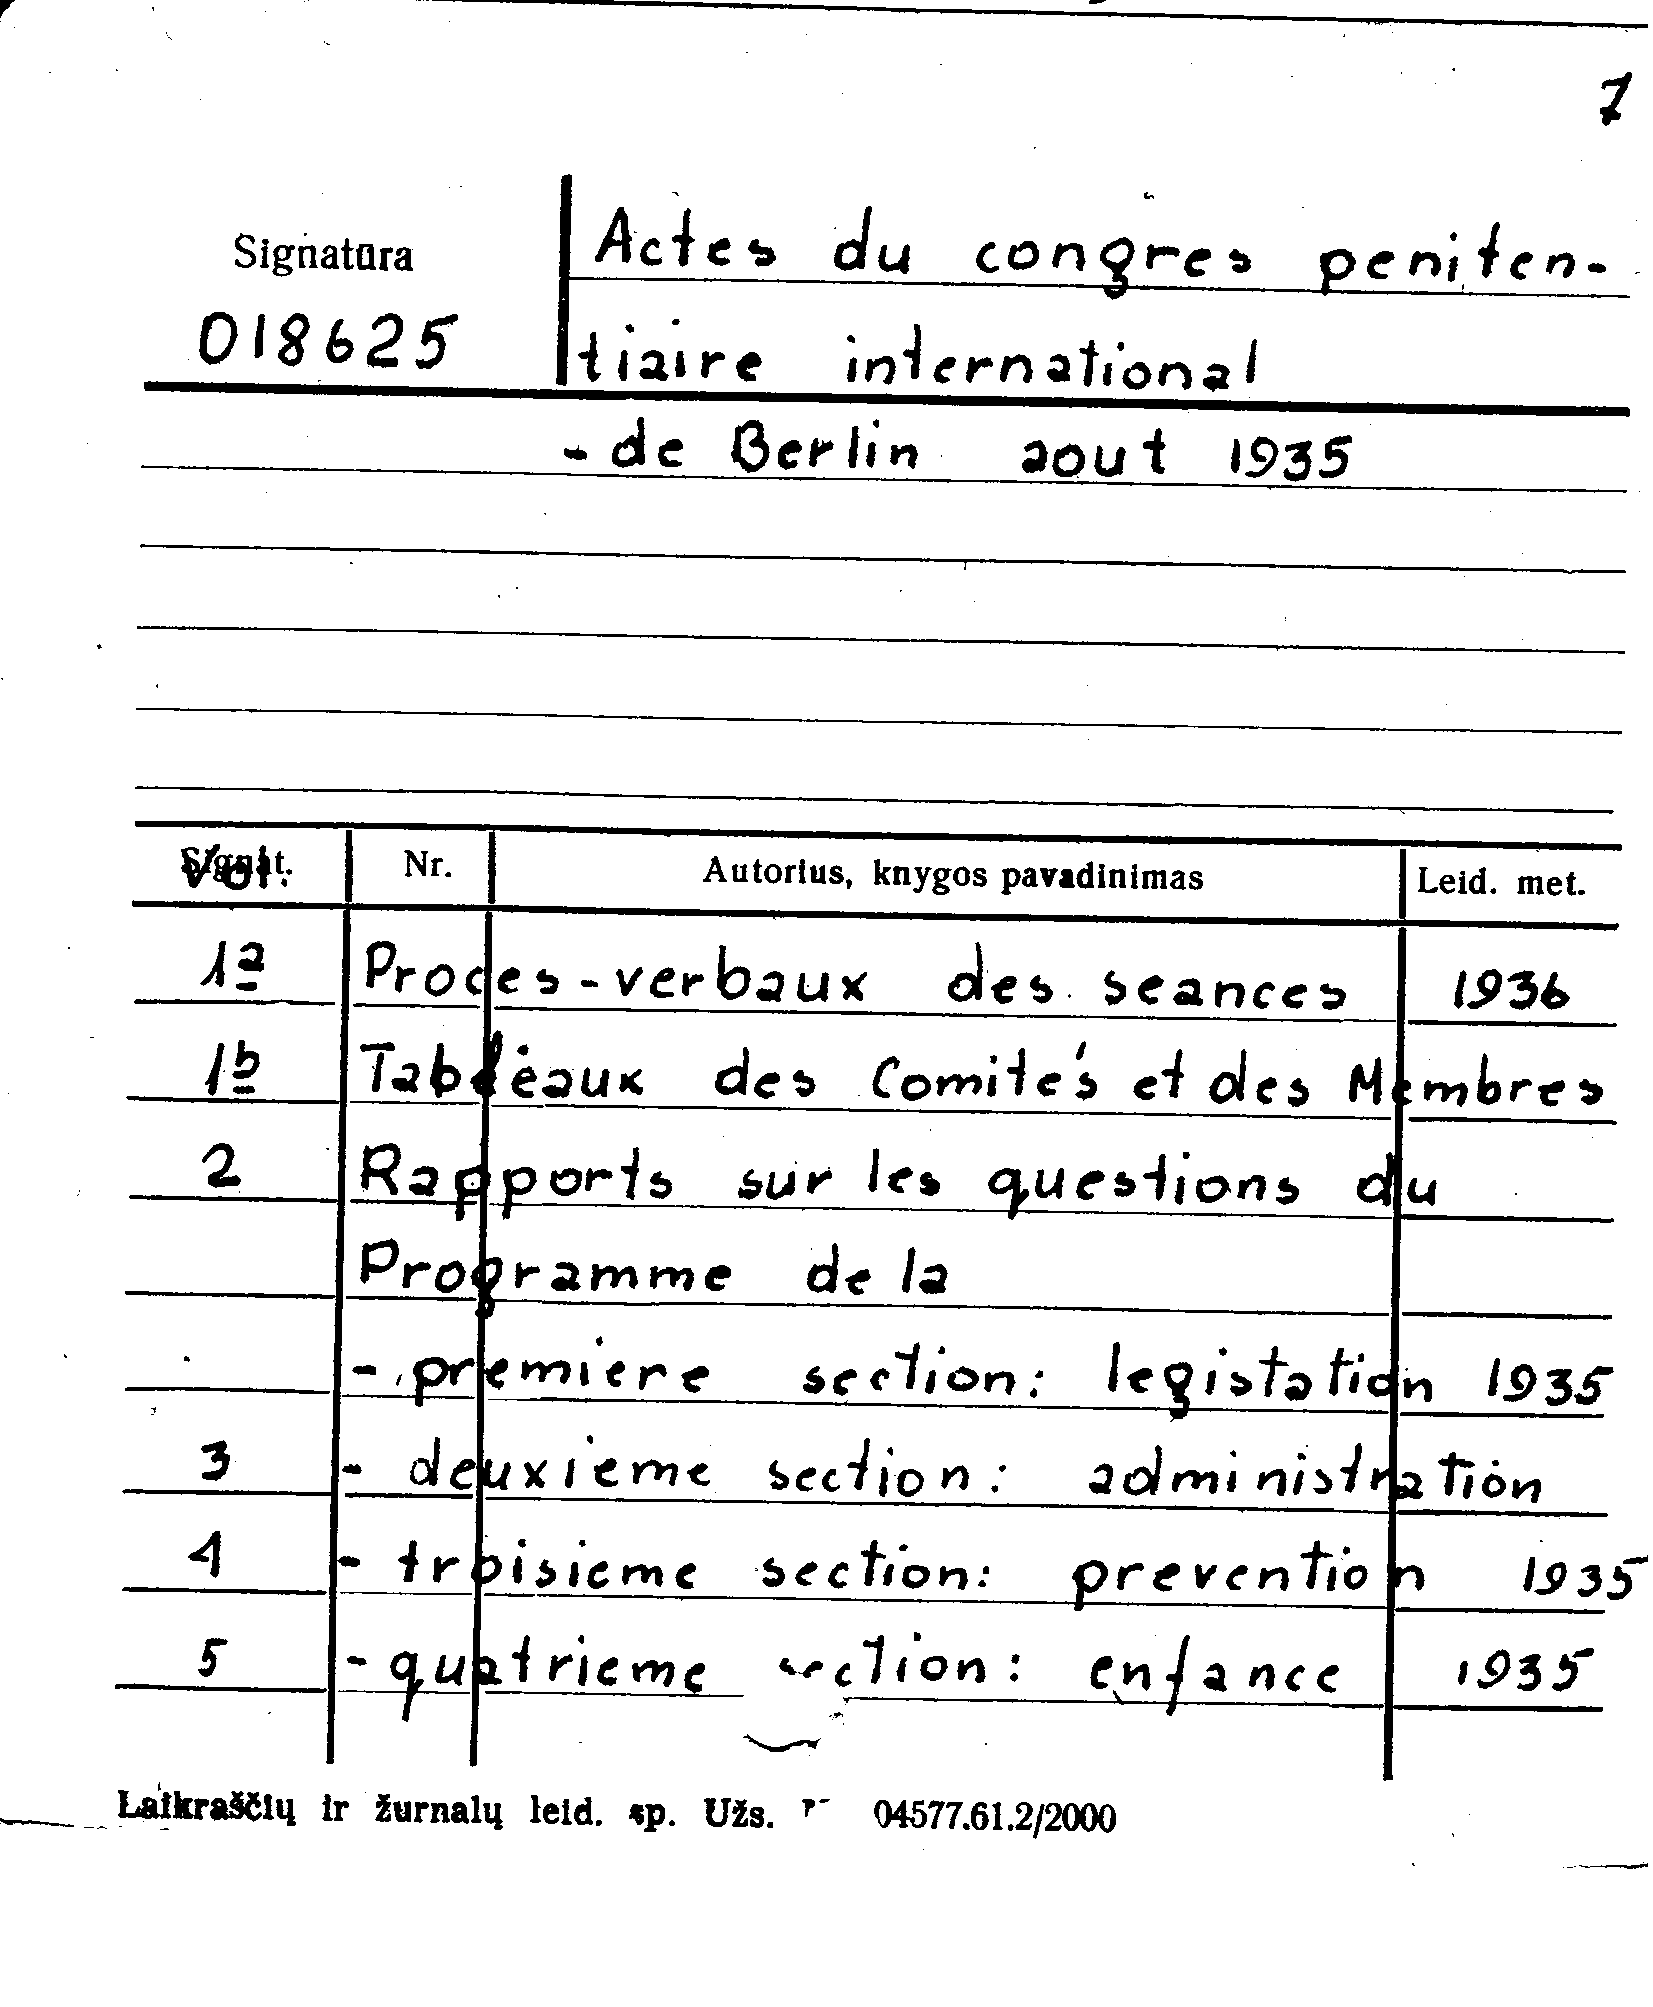 7
Signatūra
Actes du congres peniten-
018625
tiaire international
- de Berlin aout 1935
Vol. Nr. Autorius, knygos pavadinimas Leid. met.
1a Proces-verbaux des seances 1936
1b Tableaux des Comités et des Membres
2 Rapports sur les questions du
Programme de la
- premiere section: legistation 1935
3 - deuxieme section: administration
4 - troisieme section: prevention 1935
5 - quatrieme section: enfance 1935
Laikraščių ir žurnalų leid. sp. Užs. 04577.61.2/2000